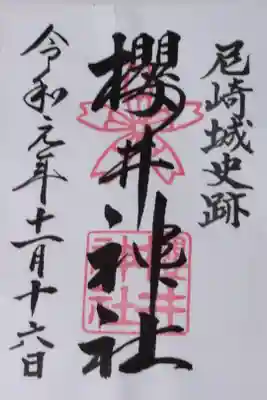 尼崎城史跡
櫻井神社
令和元年十一月十六日
櫻井
神社